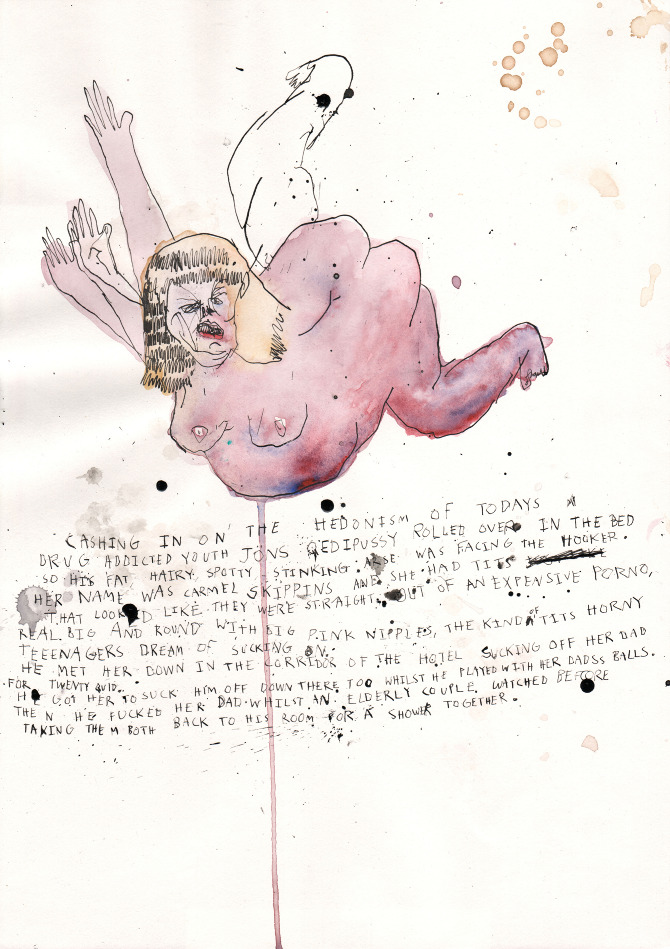 CASHING IN ON THE HEDONISM OF TODAYS
DRUG ADDICTED YOUTH JONS OEDIPUSSY ROLLED OVER IN THE BED
SO HIS FAT HAIRY SPOTTY STINKING ARSE WAS FACING THE HOOKER.
HER NAME WAS CARMEL SKIPPINS AND SHE HAD TITS
THAT LOOKED LIKE THEY WERE STRAIGHT OUT OF AN EXPENSIVE PORNO,
REAL BIG AND ROUND WITH BIG PINK NIPPLES, THE KIND OF TITS HORNY
TEEENAGERS DREAM OF SUCKING ON.
HE MET HER DOWN IN THE CORRIDOR OF THE HOTEL SUCKING OFF HER DAD
FOR TWENTY QUID.
HE GOT HER TO SUCK HIM OFF DOWN THERE TOO WHILST HE PLAYED WITH HER DADSS BALLS.
THEN HE FUCKED HER DAD WHILST AN ELDERLY COUPLE WATCHED BEFORE
TAKING THEM BOTH BACK TO HIS ROOM FOR A SHOWER TOGETHER.